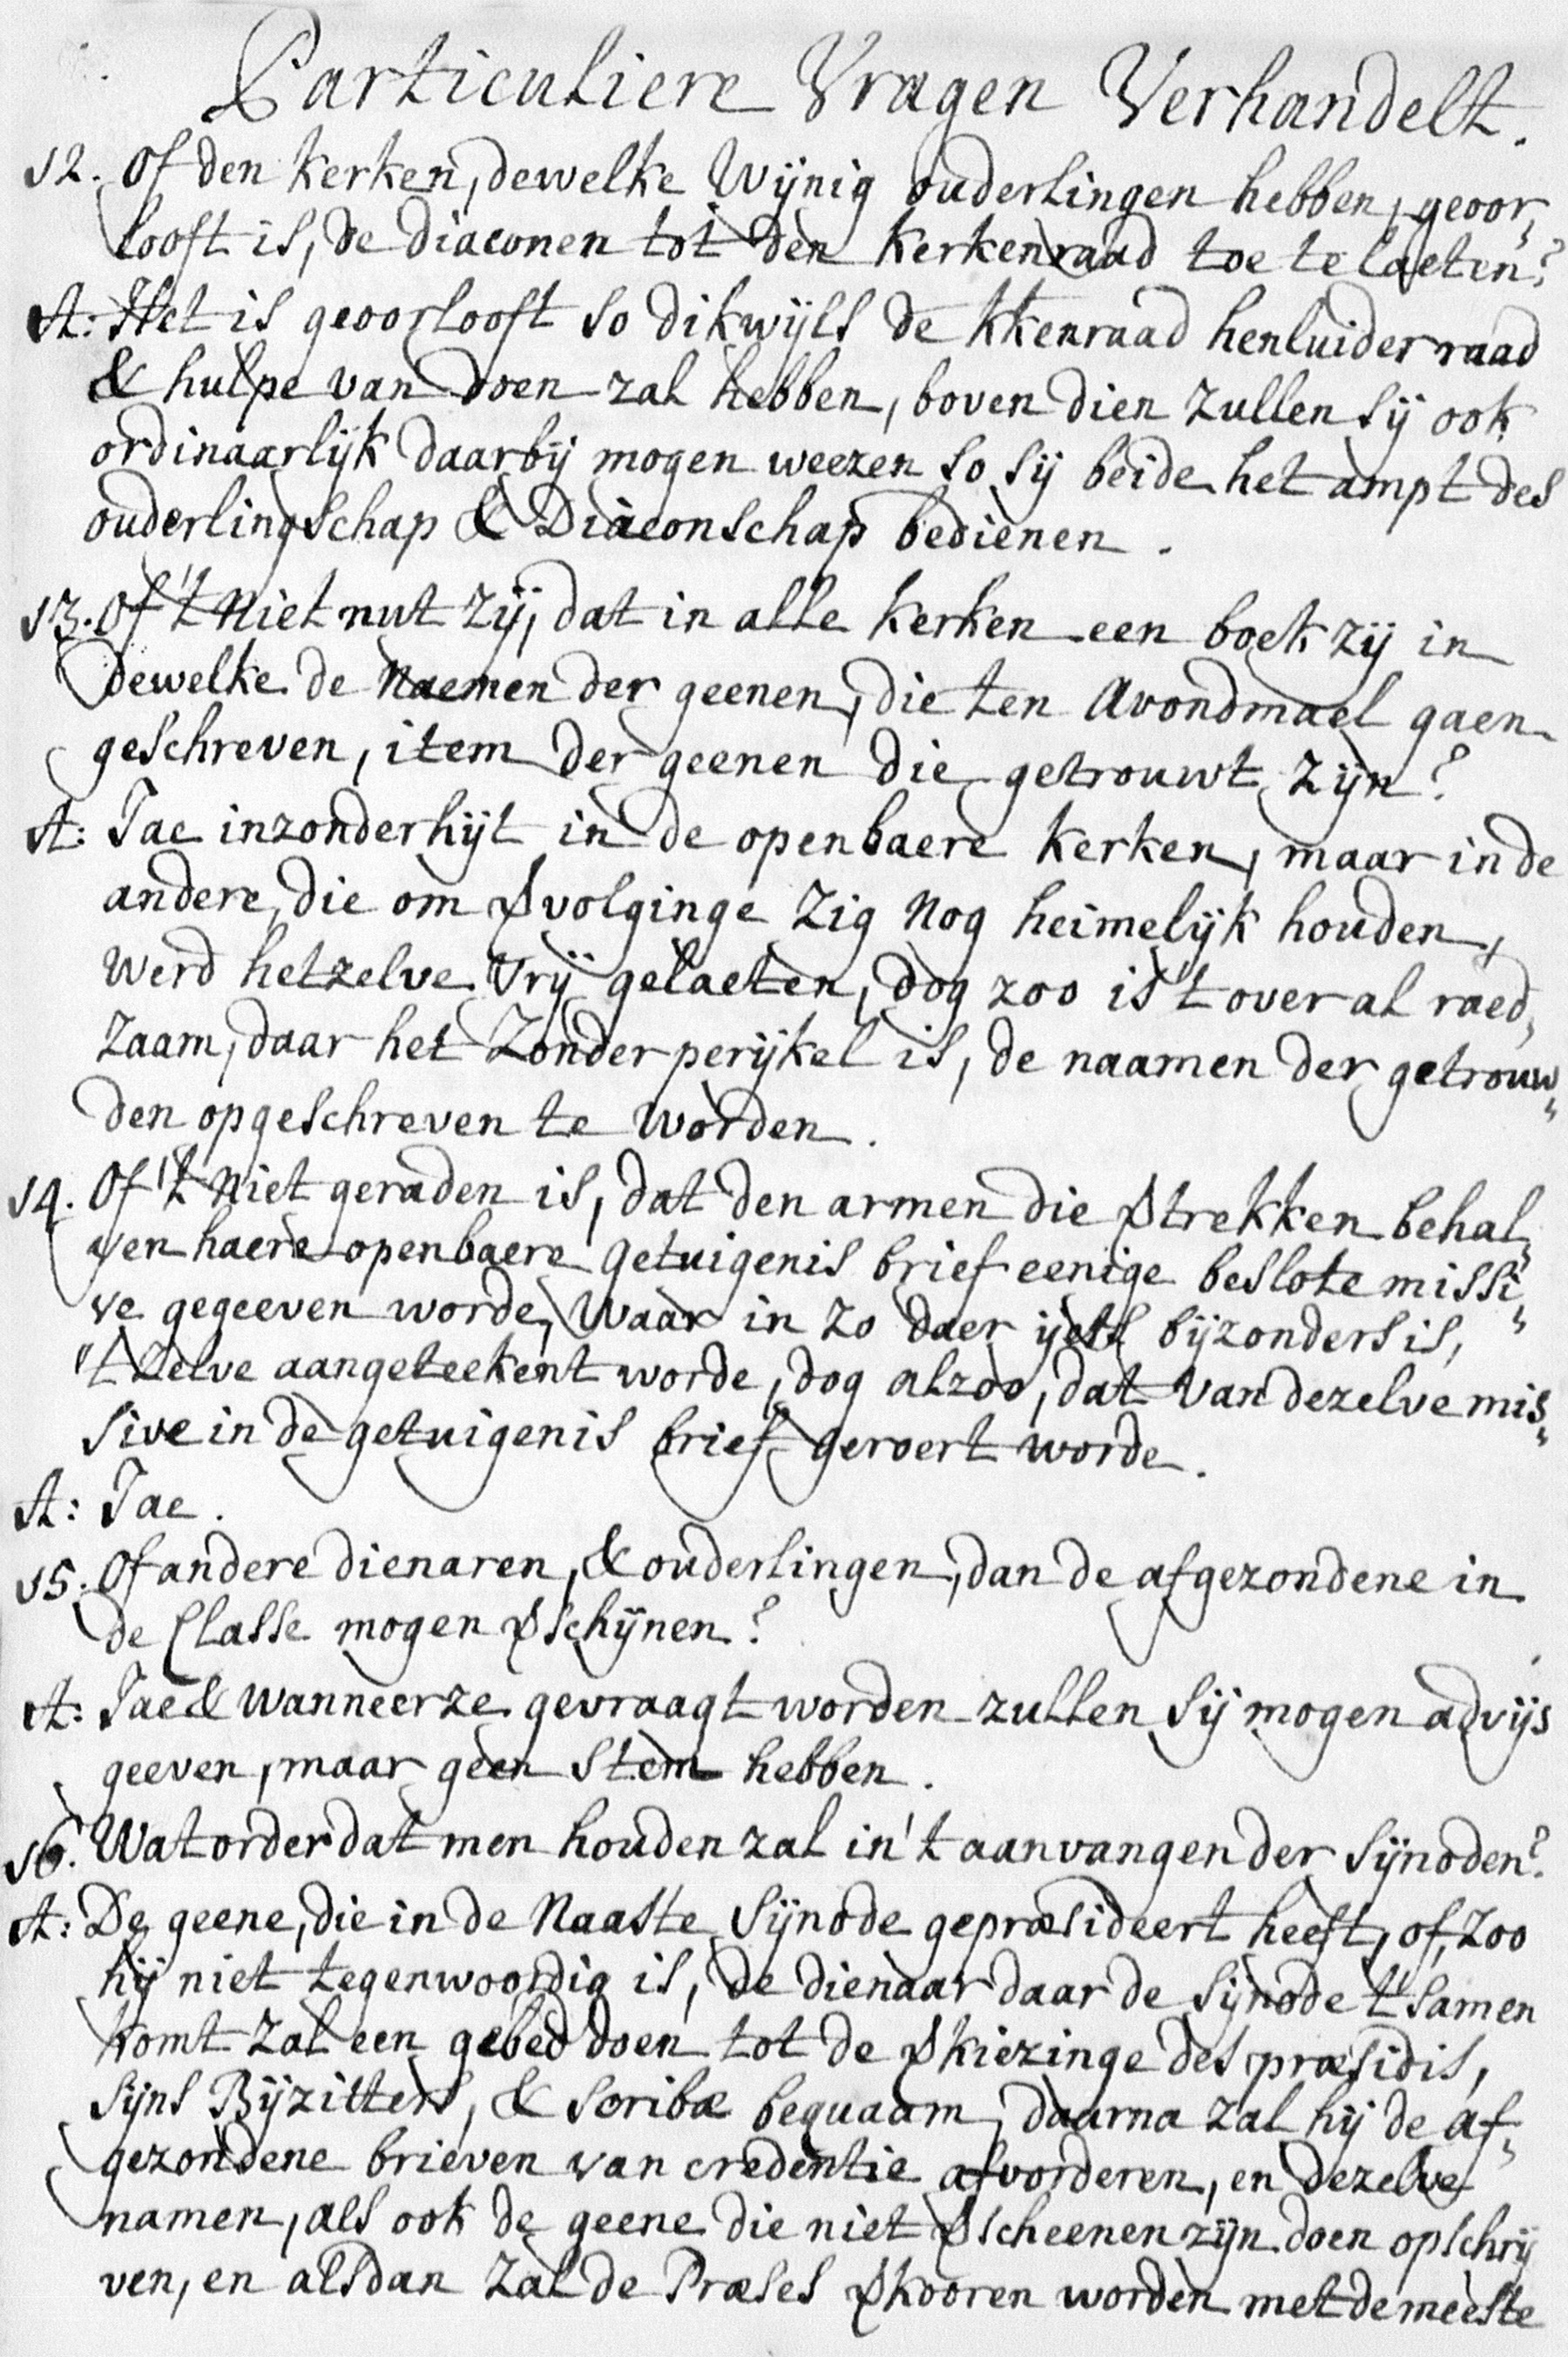 Particuliere Vragen Verhandelt.
12. Of den kerken, dewelke Wijnig ouderlingen hebben, geoor„
looft is, de diaconen tot den kerkenraad toe te laeten?
A: Het is geoorlooft so dikwijls de kkenraad henluider raad
& hulpe van doen zal hebben, boven dien zullen sij ook
ordinaarlijk daarbij mogen weezen so sij beide het ampt des
ouderlingschap & Diaconschap bedienen.
13. Of 't Niet nut zij, dat in alle kerken een boek zij in
dewelke de Naemen der geenen, die ten Avondmael gaen
geschreven, item der geenen die getrouwt zijn?
A: Jae inzonderhijt in de openbaere kerken, maar in de
andere, die om ꝟvolginge Zig Nog heimelijk houden,
Werd hetzelve Vrij gelaeten, dog zoo is 't over al raed„
Zaam, daar het Zonder perijkel is, de naamen der getrouw„
den opgeschreven te worden.
14. Of 't Niet geraden is, dat den armen die ꝟtrekken behal„
ven haere openbaere getuigenis brief eenige beslote missi„
ve gegeeven worde, Waar in zo daer ijets bijzonders is,
't zelve aangeteekent worde, dog alzoo, dat van dezelve mis„
sive in de getuigenis brief geroert worde.
A: Jae.
15. Of andere dienaren, & ouderlingen, dan de afgezondene in
de Classe mogen ꝟschijnen?
A: Jae & wanneer ze gevraagt worden zullen sij mogen advijs
geeven, maar geen stem hebben.
16. Wat order dat men houden zal in 't aanvangen der sijnoden?
A: De geene, die in de Naaste sijnode gepræsideert heeft, of, zoo
hij niet tegenwoordig is, de dienaar daar de sijnode t'samen
komt zal een gebed doen tot de ꝟkiezinge des præsidis,
sijns Bijzitters, & scribæ bequaam, daarna zal hij de af„
gezondene brieven van credentie afvorderen, en dezelve
namen, als ook de geene die niet ꝟscheenen zijn doen opschrij
ven, en alsdan zal de Præses ꝟkooren worden met de meeste